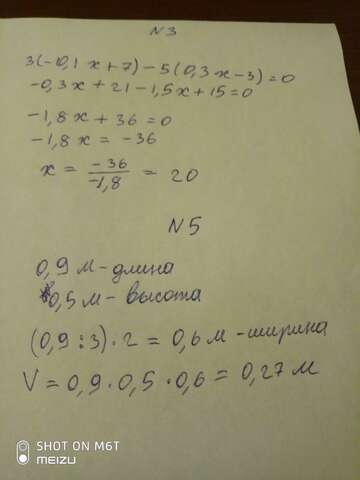 N3
3(-0,1x+7)-5(0,3x-3)=0
-0,3x+21-1,5x+15=0
-1,8x+36=0
-1,8x=-36
x = -36/-1,8 = 20
N5
0,9 м - длина
0,5 м - высота
(0,9:3)·2 = 0,6 м - ширина
V = 0,9·0,5·0,6 = 0,27 м
SHOT ON M6T
MEIZU